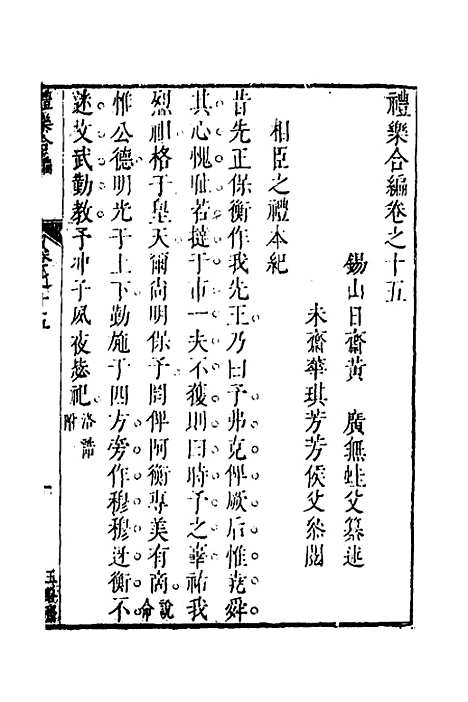 禮樂合編卷之十五
錫山日齋黃　廣無蛙父纂述
未齋華琪芳芳侯父參閱
相臣之禮本紀
昔先正保衡作我先王乃曰予弗克俾厥后惟堯舜
其心愧恥若撻于市一夫不獲則曰時予之辜祐我
烈祖格于皇天爾尚明保予罔俾阿衡專美有商說命
惟公德明光于上下勤施于四方旁作穆穆迓衡不
迷文武勤教予冲子夙夜毖祀洛誥
禮樂合編
卷之十五
一
玉磬齋